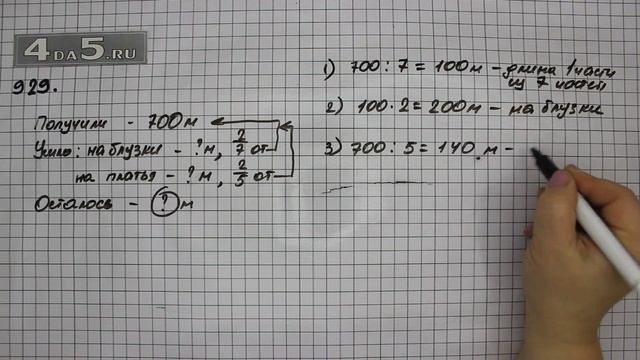 4DA5.RU
929.
Получили - 700м
Ушло: на блузки - ? м, 2/7 от
на платья - ? м, 2/5 от
Осталось - ? м
1) 700 : 7 = 100м - длина 1 части
из 7 частей
2) 100 · 2 = 200м - на блузки
3) 700 : 5 = 140 м -